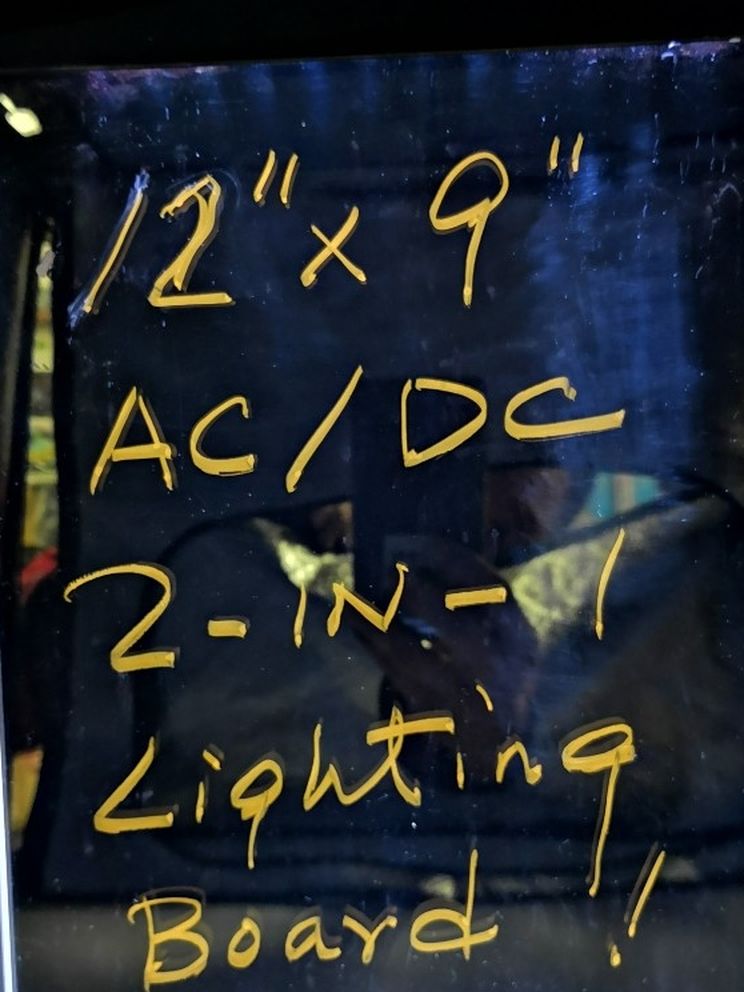 12" x 9"
AC/DC
2-IN-1
Lighting
Board!